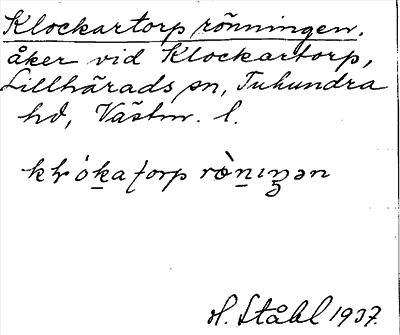 Klockartorp rönningen.
åker vid Klockartorp,
Lillhärads sn, Tuhundra
hd, Västm. l.
H. Ståhl 1937.